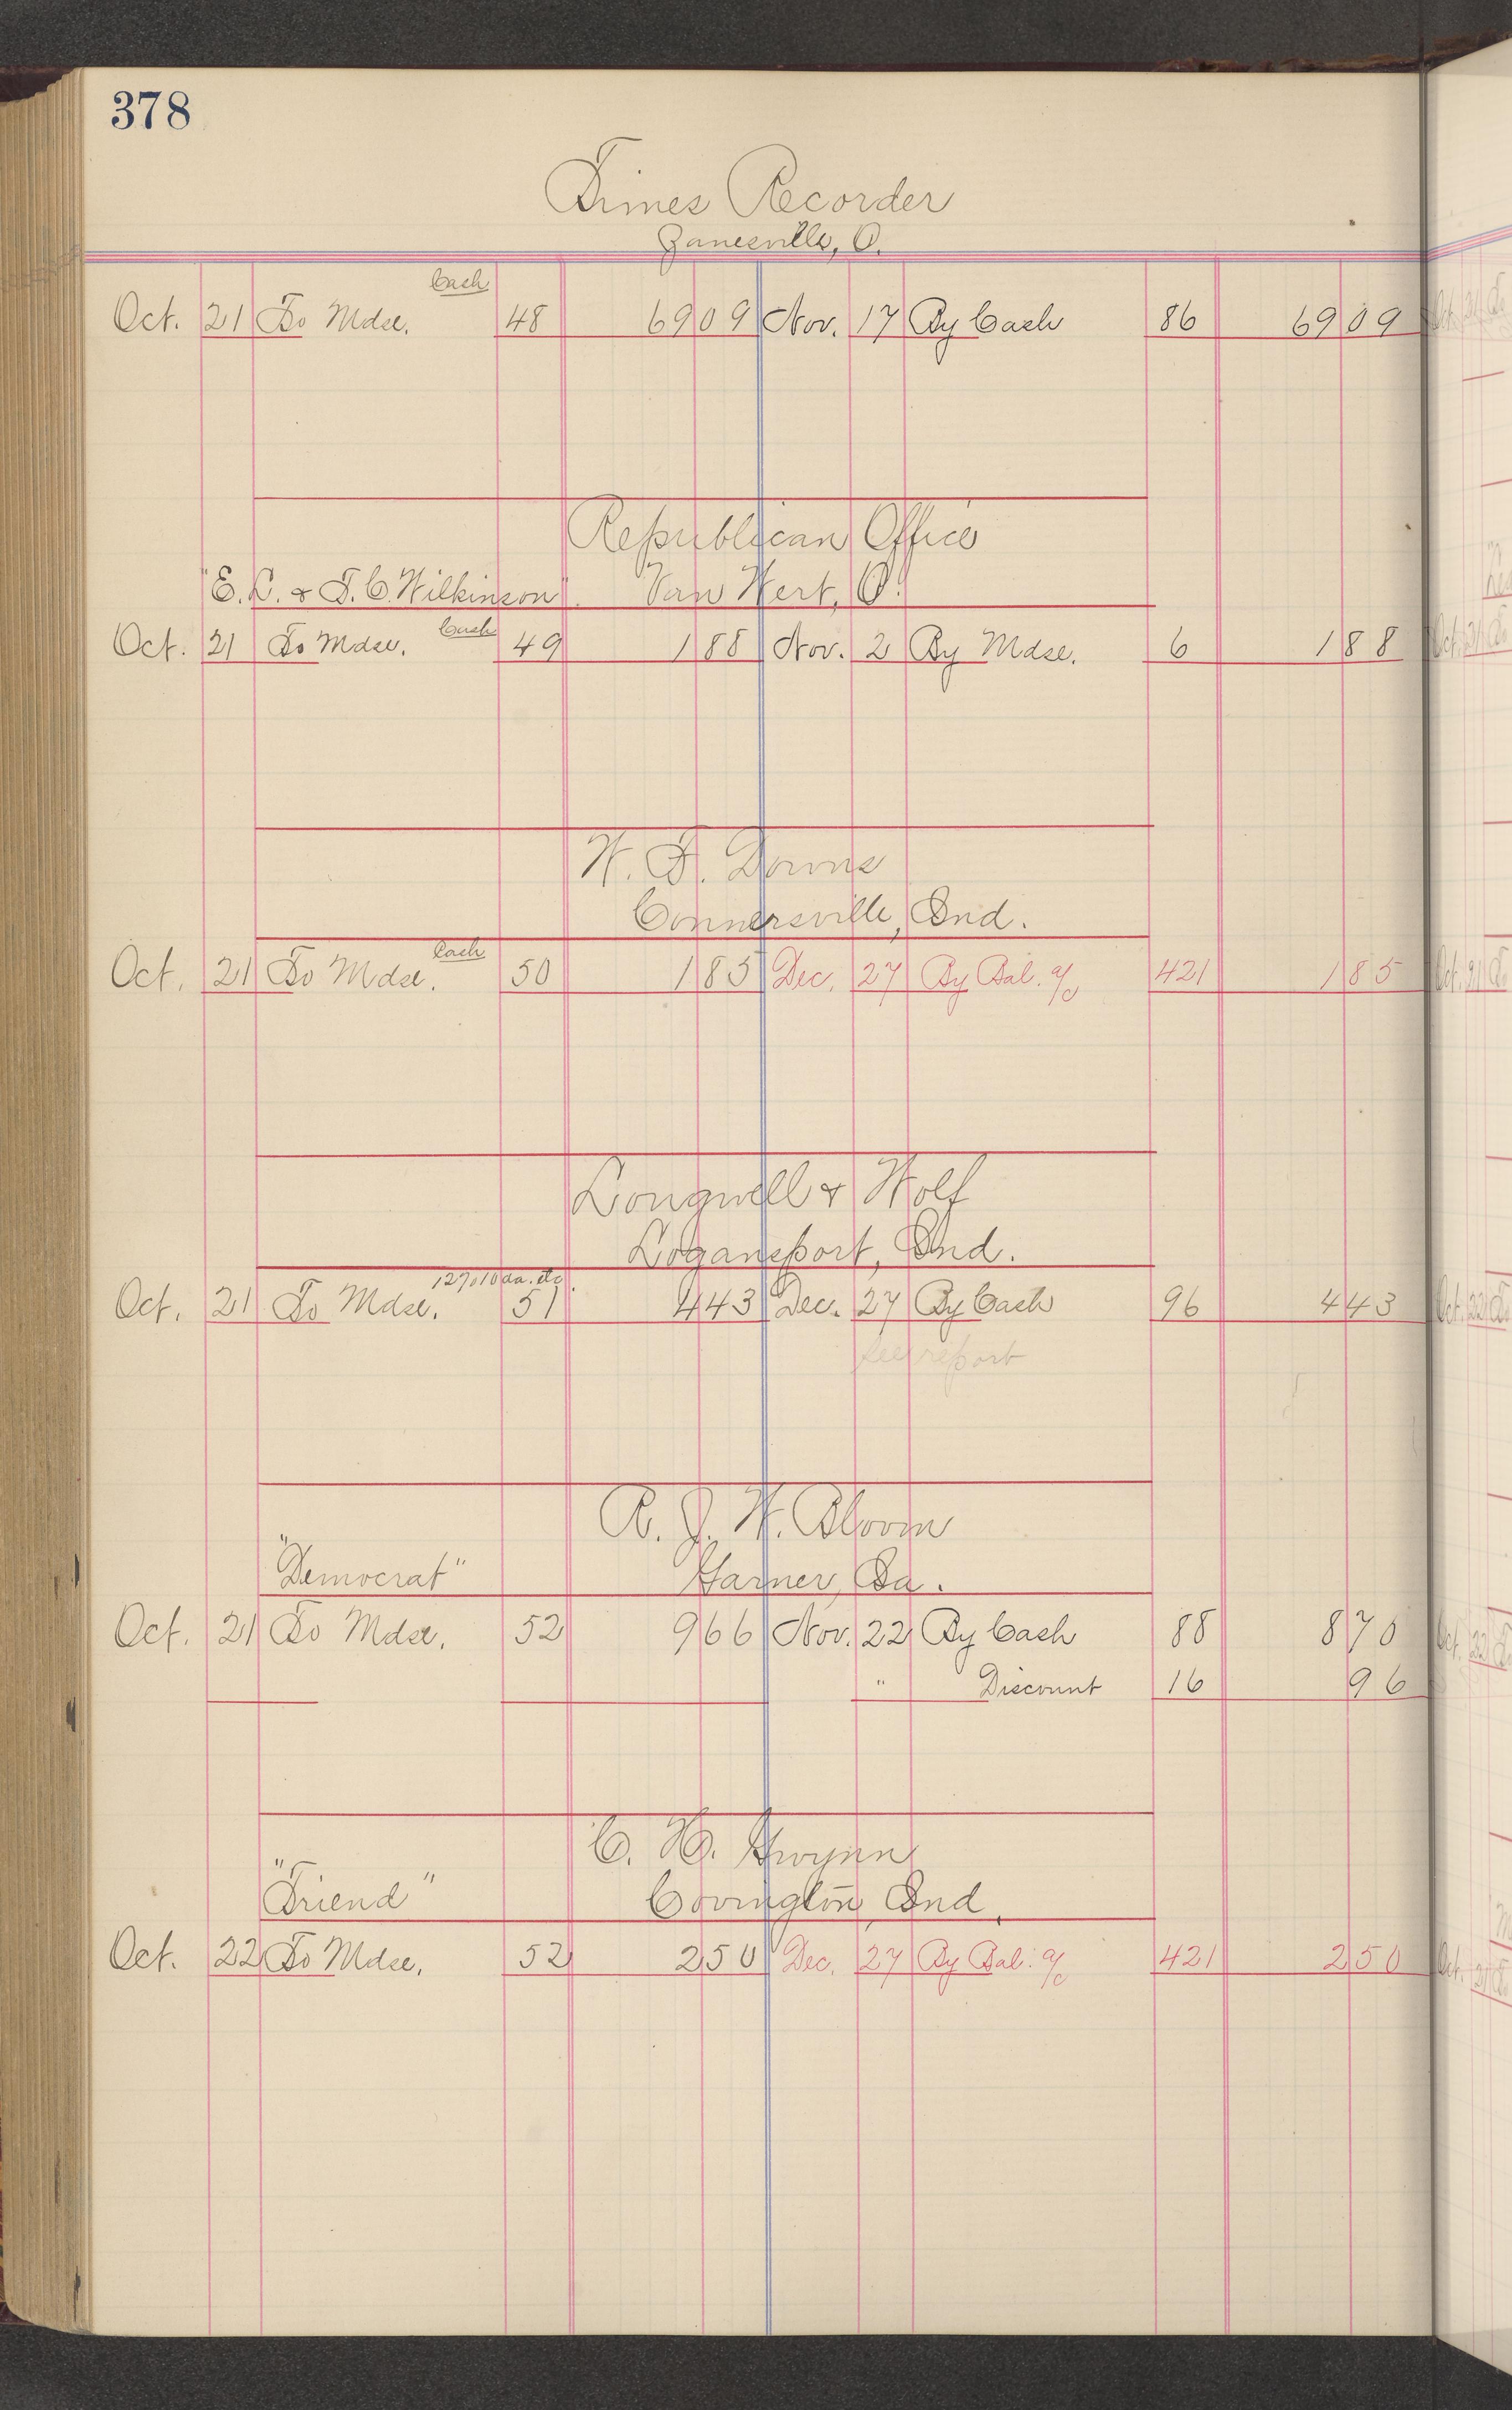 378
Times Recorder
Zanesville, O.
Cash
Oct. 21 To Mdse. 48 69 09 Nov. 17 By Cash 86 69 09
Republican Office
"E. L. & T. C. Wilkinson". Van Wert, O.
Cash
Oct. 21 To Mdse. 49 1 88 Nov. 2 By Mdse. 6 1 88
W. F. Downs
Connersville, Ind.
Cash
Oct. 21 To Mdse. 50 1 85 Dec. 27 By Bal. a/c 421 1 85
Longwell & Wolf
Logansport, Ind.
Oct. 21 To Mdse. 51 4 43 Dec. 27 By Cash 96 4 43
see report
R. J. W. Bloom
"Democrat" Garner, Ia.
Oct. 21 To Mdse. 52 9 66 Nov. 22 By Cash 88 8 70
" Discount 16 96
C. H. Gwynn
"Friend" Covington, Ind.
Oct. 22 To Mdse. 52 2 50 Dec. 27 By Bal. a/c 421 2 50